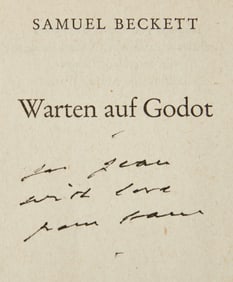 SAMUEL BECKETT
Warten auf Godot
for Jean
with love
from Sam